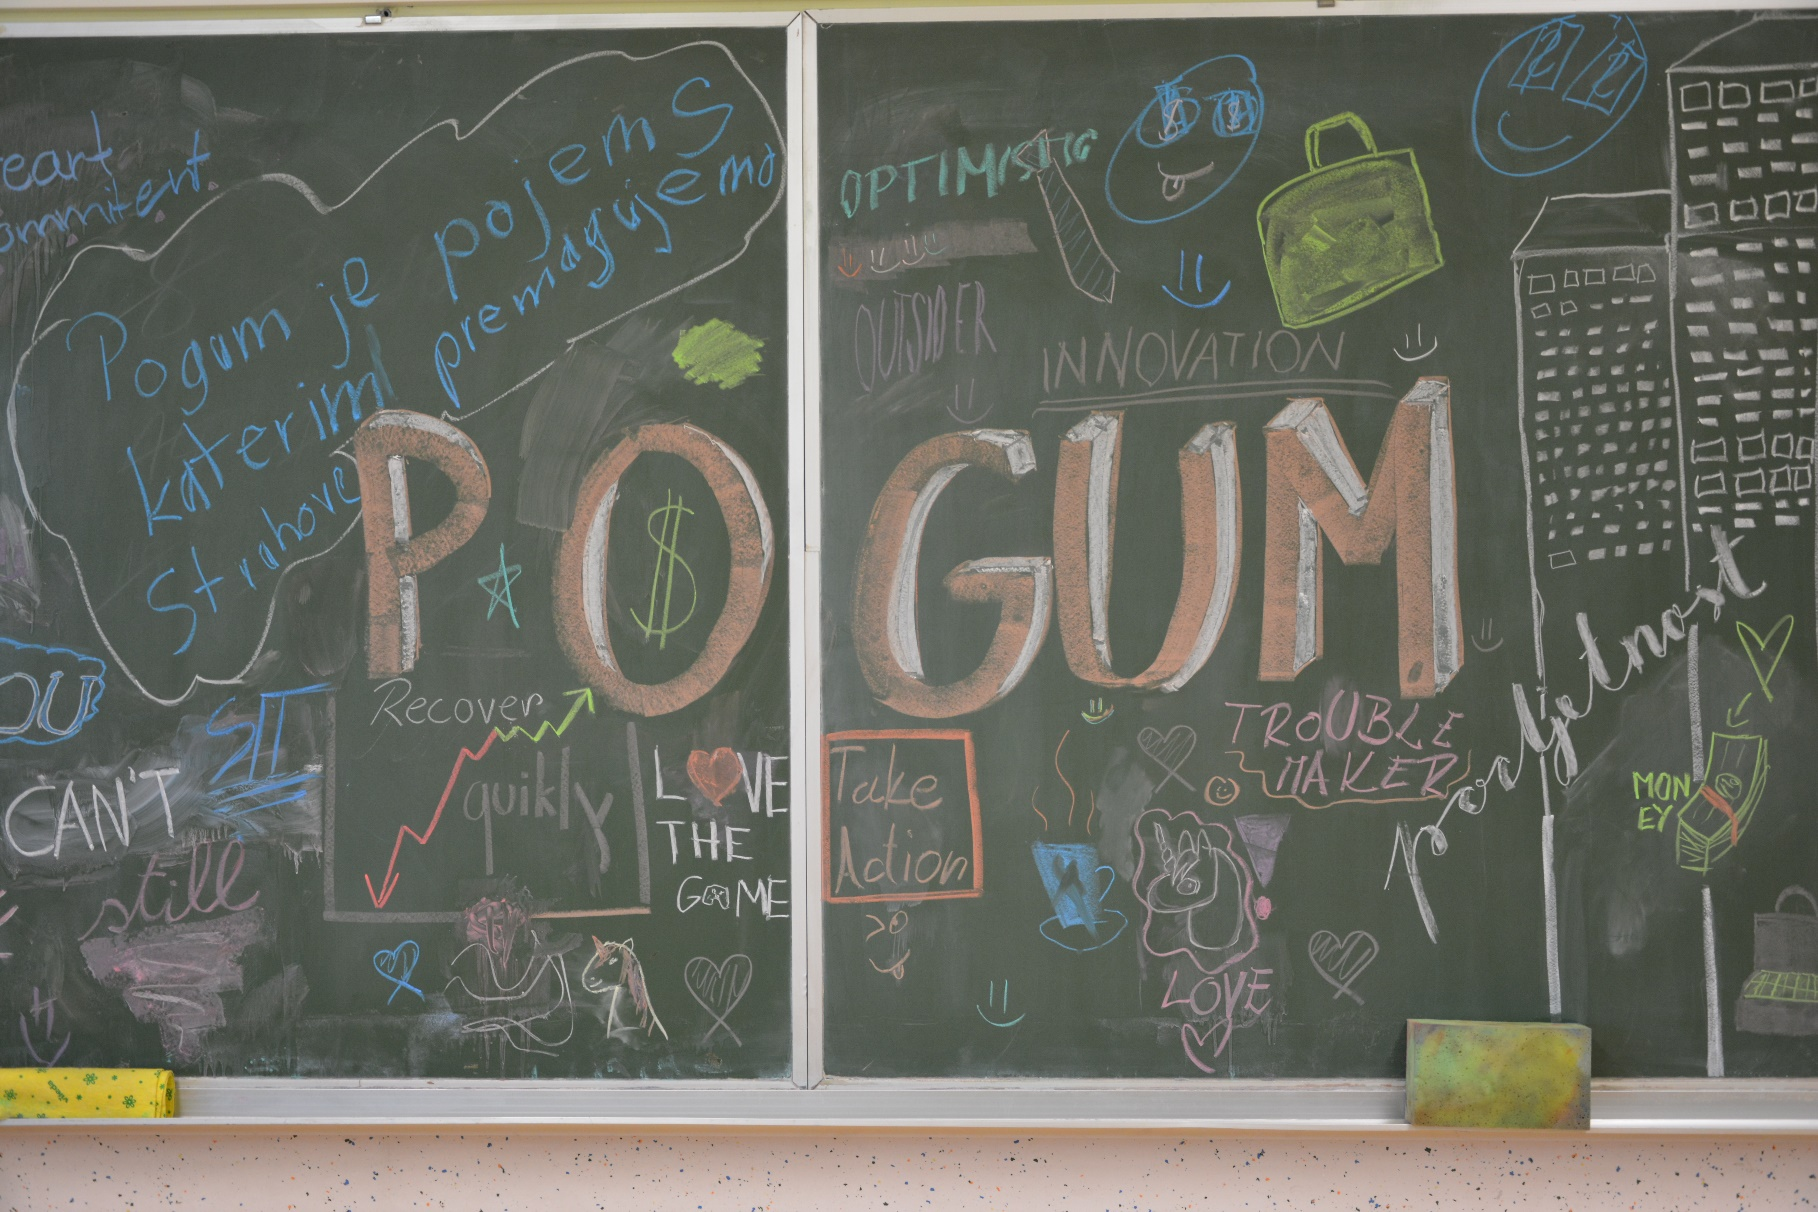 Pogum je pojem S
katerim premagujemo
Strahove
OPTIMISTIC
OUTSIDER
INNOVATION
POGUM
$
Recover
quikly
CAN'T
still
LOVE
THE
GAME
Take
Action
TROUBLE
MAKER
LOVE
podjetnost
MON
EY